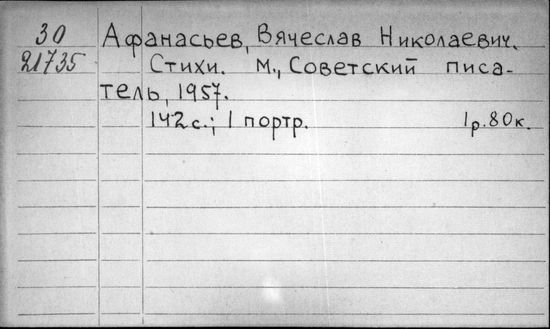 30 Афанасьев, Вячеслав Николаевич.
21735 Стихи. М., Советский писа-
тель, 1957.
142с.; 1 портр. 1р.80к.